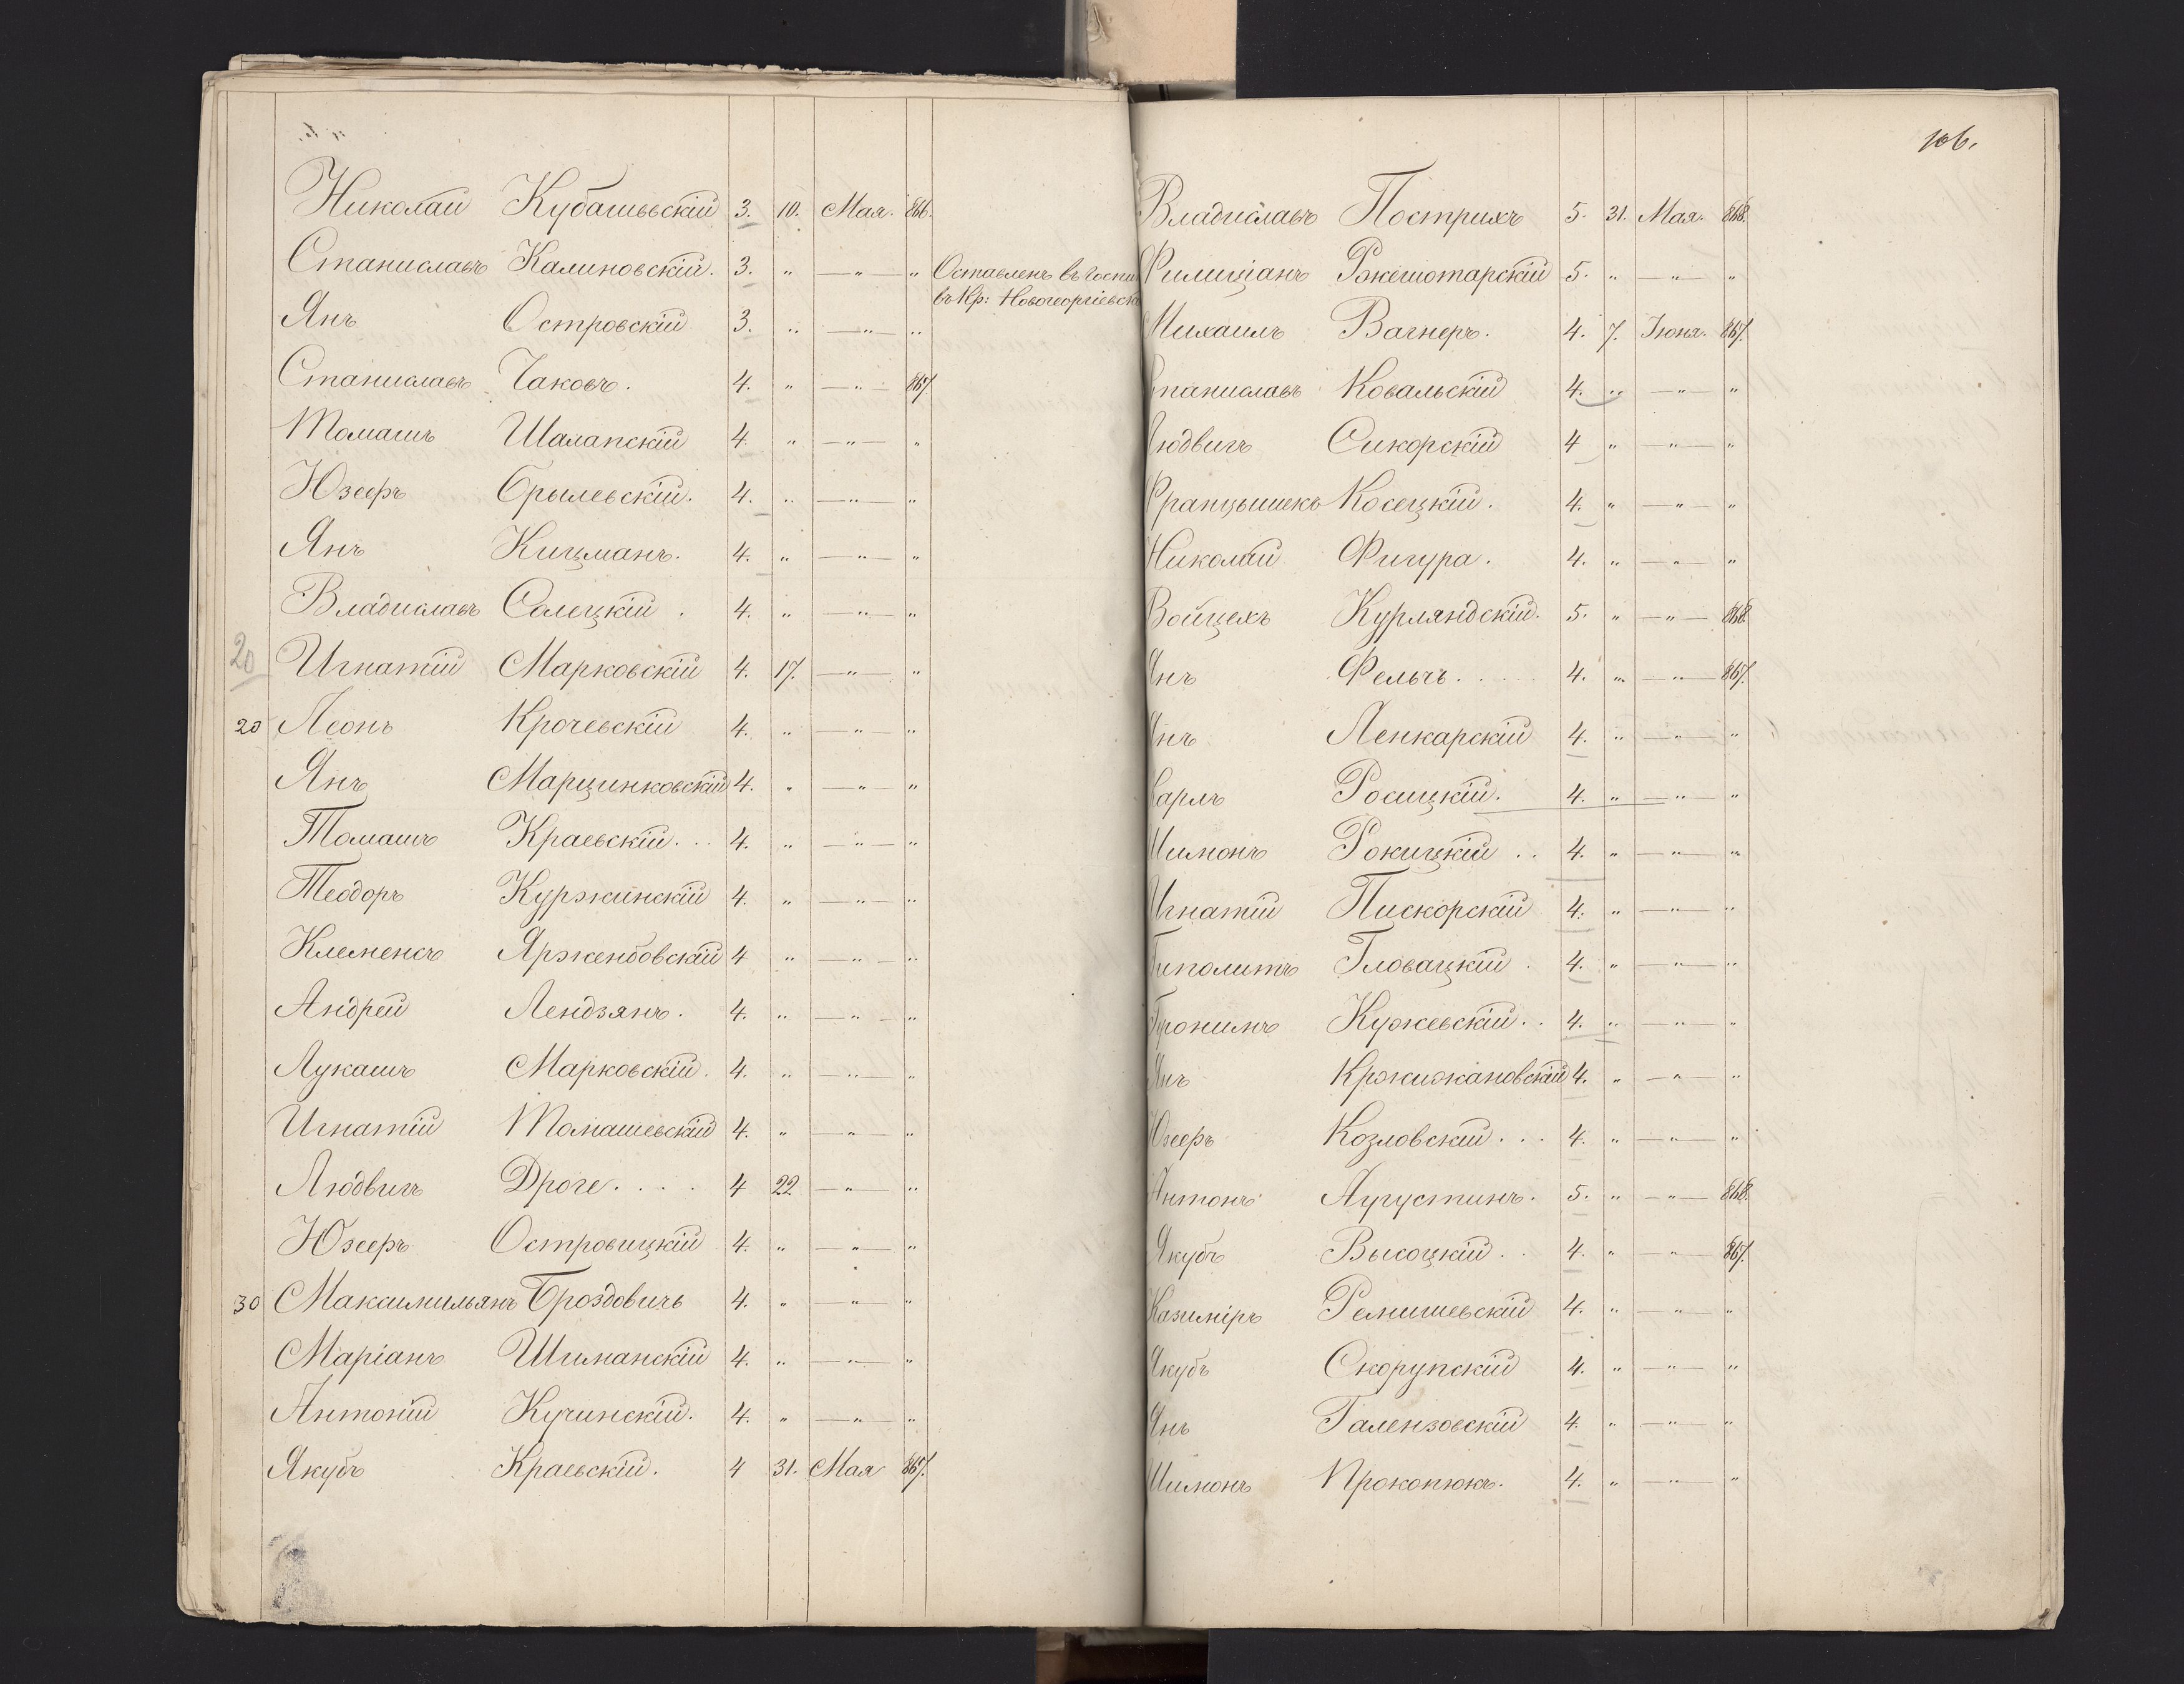 Николай Кубашевскій 3. 10. Мая. 866.
Станиславъ Калиновскій. 3. " — " — " Оставленъ въ госпи
въ Кр: Новогеоргіевск
Янъ Островскій 3. " — " — "
Станиславъ Чаковъ. 4. " — " — 867.
Томашъ Шалапскій 4. " — " — "
Юзефъ Брылевскій. 4. " — " — "
Янъ Кицманъ. 4. " — " — "
Владиславъ Солецкій. 4. " — " — "
20 Игнатій Марковскій 4. 17. — " — "
20 Леонъ Крочевскій 4. " — " — "
Янъ Марцинковскій 4. " — " — "
Томашъ Краевскій... 4. " — " — "
Теодоръ Куржинскій 4. " — " — "
Клеменсъ Яржембовскій 4 " — " — "
Андрей Лендзянъ. 4. " — " — "
Лукашъ Марковскій. 4. " — " — "
Игнатій Томашевскій 4. " — " — "
Людвигъ Дроге.... 4 22 — " — "
Юзефъ Островицкій 4. " — " — "
30 Максимильянъ Броздовичъ 4. " — " — "
Маріанъ Шиманскій 4. " — " — "
Антоній Кучинскій. 4. " — " — "
Якубъ Краевскій. 4 31. Мая 867.
106.
Владиславъ Пострихъ 5. 31. Мая. 868.
Филиціанъ Ржешотарскій 5. " — " — "
Михаилъ Вагнеръ. 4. 7. Іюня. 867.
Станиславъ Ковальскій 4. " — " — "
Людвигъ Сикорскій 4 " — " — "
Францышекъ Косецкій. 4. " — " — "
Николай Фигура. 4. " — " — "
Войцехъ Курляндскій. 5. " — " — 868.
Янъ Фельчъ..... 4. " — " — 867.
Янъ Ленкарскій 4. " — " — "
Карлъ Росицкій. 4. " — " — "
Шимонъ Рокицкій.. 4. " — " — "
Игнатій Пискорскій 4. " — " — "
Гиполитъ Гловацкій. 4. " — " — "
Гіронимъ Кужевскій.. 4. " — " — "
Янъ Кржижановскій 4. " — " — "
Юзефъ Козловскій... 4. " — " — "
Антонъ Аугустинъ. 5. " — " — 868.
Якубъ Высоцкій.. 4. " — " — 867.
Казиміръ Ремишевскій 4. " — " — "
Якубъ Скорупскій 4. " — " — "
Янъ Галензовскій 4. " — " — "
Шимонъ Прокопюкъ. 4. " — " — "